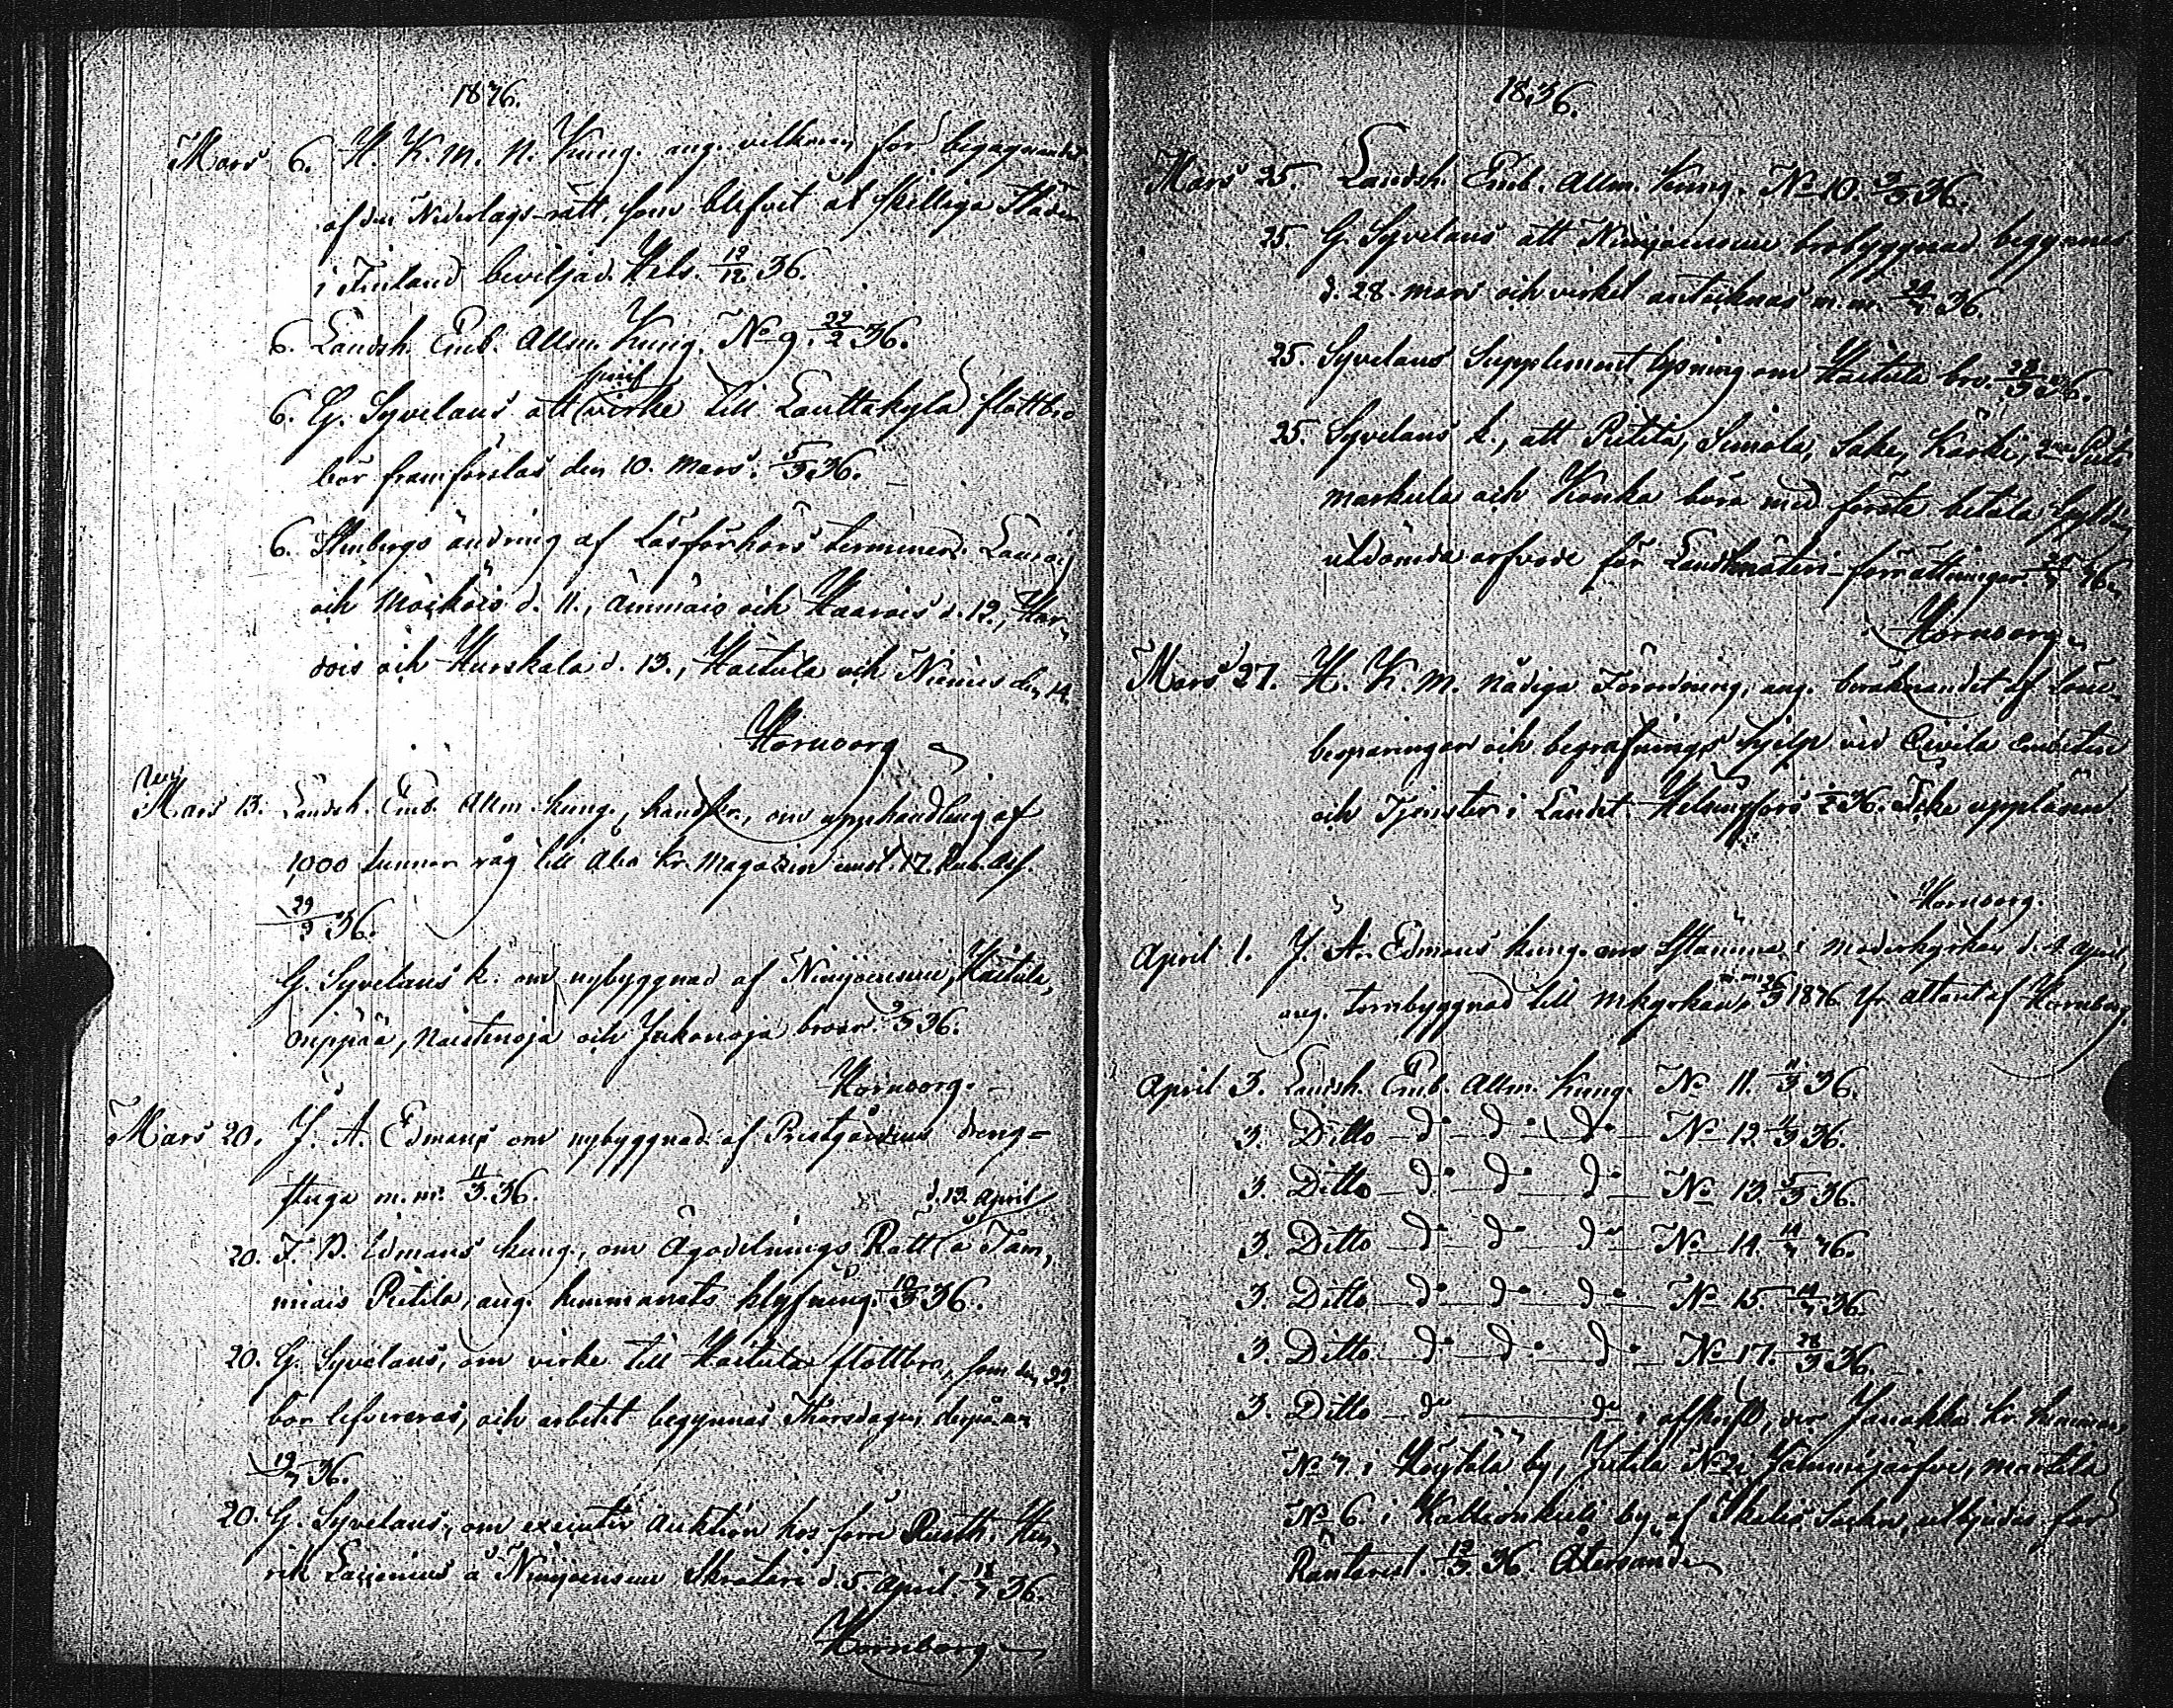 1836.
Mars 6. H. K. M. N. Kung. ang. vilkoren för begagnandet
af den Nederlags-rätt, som blifvit åt skilliga Städer
i Finland beviljad. Hels. 19/12 36.
6. Landsh. Emb. Allm. Kung. No 9. 22/2 36.
6. G. Syvelaus att virke till Lauttakylä flottbro
bör framforslas den 10. Mars. 5/3 36.
6. Stenbergs ändring af Läsförhörs terminerne. Lauroi
och Moikois d. 11., Ammäis och Haarois d. 12., Har-
dois och Hurskala d. 13., Haitula och Niemis den 14.
Hornborg
Mars 13. Landsh. Emb. Allm. kung., handskr., om upphandling af
1,000 tunnor råg till Åbo Kr. Magazin emot 17. Rub. Ass.
29/3 36.
G. Syvelaus k. om nybyggnad af Ninijoensuu, Haitula,
Naistenoja och Jukonoja broar. 9/3 36.
Hornborg.
Mars 20. J. A. Edmans om nybyggnad af Prestgårdens dreng-
stuga m. m. 11/3 36.
d. 13. April
20. F. D. Edmans kung., om Ägodelnings Rätt å Tam-
miais Pietilä, ang. hemmanets klyfning. 10/3 36.
20. G. Syvelaus, om virke till Haitula flottbro, som den 22.
bör lefvereras, och arbetet begynnas Thorsdagen derpå
19/3 36.
20. G. Syvelaus, om executiv Auktion hos förre Rusth. Hen-
rik å Ninijoensuu Skräteri d. 5. April 18/3 36.
Hornborg
1836.
Mars 25. Landsh. Emb. Allm. Kung. No 10. 3/3 36.
25. G. Syvelaus att Ninijoensuu brobyggnad begynnes
d. 28. Mars och virket antecknas m. m. 24/3 36.
25. Syvelaus Supplement lysning om Haitula bro. 23/3 36.
25. Syvelaus k., att Pietilä, Simola, Sake, Kärki,
Markula och Konka böra med förste betala
utdömda arfvode för Landtmäteri-förrättningar.
Hornborg
Mars 27. H. K. M. Nådiga Förordning, ang. beräknandet af Löne-
besparingar och begrafnings hjelp vid Civila Embeten
och Tjenster i Landet. Helsingfors 36. Icke uppläsen.
Hornborg.
April 1. J. A. Edmans kung. om Sstämma i Moderkyrkan d. 4 April,
ang. tornbyggnad till Mkyrkan m. m. 26/3 1836. Ur. attent af Hornborg.
April 3. Landsh. Emb. Allm. Kung. No 11. 4/3 36.
3. Ditto do do do No 12. 4/3 36.
3. Ditto do do do No 13. 5/3 36.
3. Ditto do do do No 14. 14/3 36.
3. Ditto do do do No 15. 14/3 36.
3. Ditto do do do No 17. 28/3 36.
3. Ditto do do i afskrift, der Janakka Kr. hemman
No 7. i Höytälä by, Jutila No 2 Jälumsjärfvi, Martila
No 6. i Kallionkieli by, af Ikalis Sockn, utbjudes för
Ränterest. 12/3 36. Återsänd.